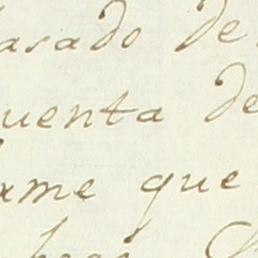 asado de
uenta de
ame que